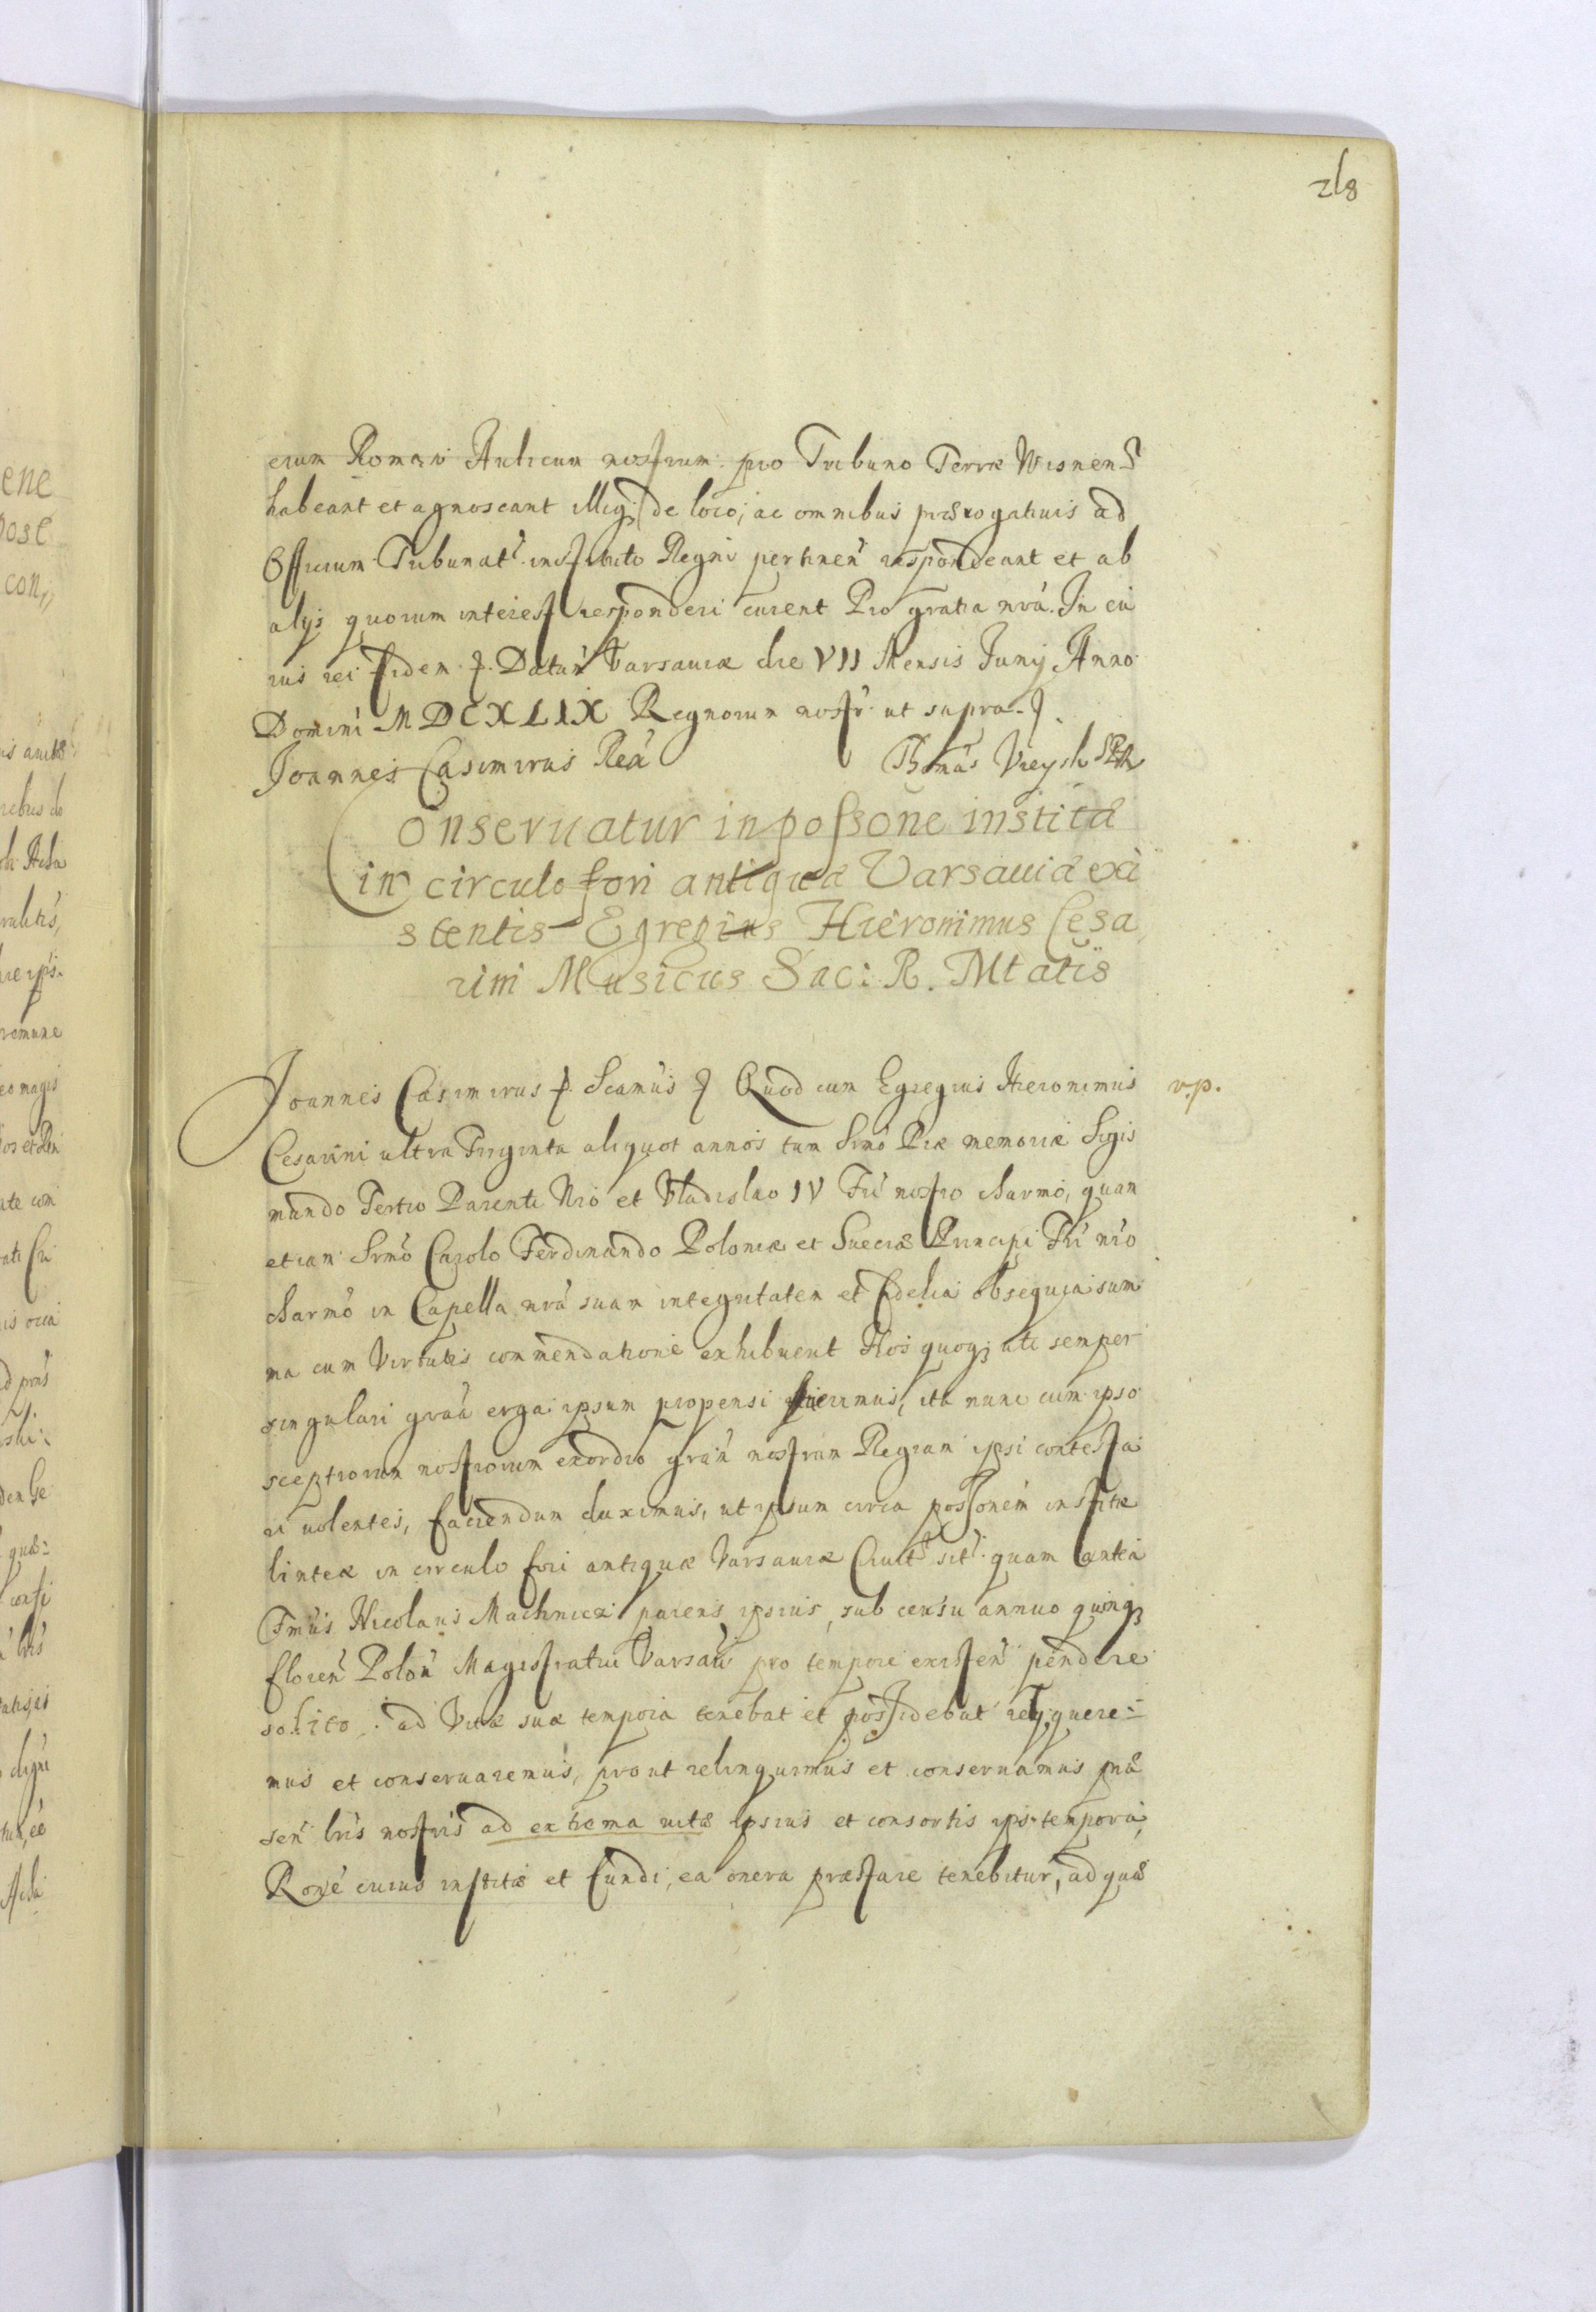 218
erum Romani Aulicum nostrum pro Tribuno Terræ Wisnens
habeant et agnoscant illiq; de loco, ac omnibus prærogatiuis ad
Officium Tribunat' instituto Regni pertinen' respondeant et ab
alijs quorum interest responderi curent Pro gratia nrã. In cu
ius rei fidem. Datum Varsauiæ die VII Mensis Junij Anno
Domini MDCXLIX Regnorum nostr. ut supra
Joannes Casimirus Rex
Thomas Vieysk
Conseruatur in possone institæ
in circulo fori antiquæ Varsauiæ exi
stentis Egregius Hieronimus Cesa
rini Musicus Sac: R. Mtatis
Joannes Casimirus Scamus Quod cum Egregius Hieronimus
v.p.
Cesarini ultra Triginta aliquot annos tum Srmo Piæ memoriæ Sigis
mundo Tertio Parenti Nro et Vladislao IV Fri nostro charmo, quam
etiam Srmo Carolo Ferdinando Poloniæ et Sueciæ Principi Fri nro
charmo in Capella nra suam integritatem et fidelia obsequia sum
ma cum Virtutis commendatione exhibuerit Nos quoq; uti semper
singulari graa erga ipsum propensi fuerimus, ita nunc cum ipso
sceptrorum nostrorum exordio gram nostram Regiam ipsi contesta
ri uolentes, faciendum duximus, ut ipsum circa possonem institæ
linteæ in circulo fori antiquæ Varsauiæ Ciuit' sit' quam antea
Fmus Nicolaus Machnicki parens ipsius, sub censu annuo quinq;
floren' Polon' Magistratui Varsau' pro tempore existen' pendere
solito ad Vitæ suæ tempora tenebat et possidebat relinquere=
mus et conseruaremus, prout relinquimus et conseruamus præ
sen' lris nostris ad extrema uitæ ipsius et consortis ips. tempora,
Rone cuius institæ et fundi, ea onera præstare tenebitur, ad quæ